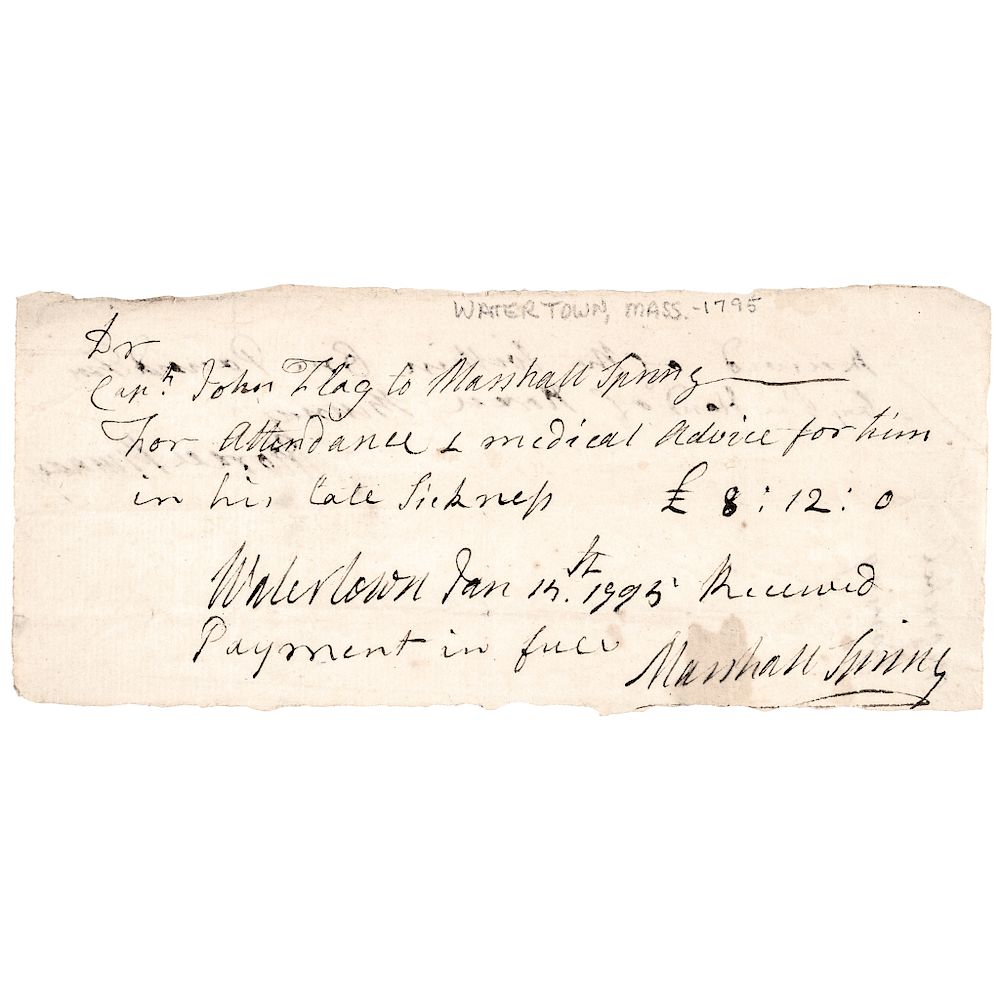 WATERTOWN, MASS. - 1795
Dr
Capt. John Flag to Marshall Spring
For Attendance & medical Advice for him
in his late Sickness £ 8 : 12 : 0
Watertown Jan 1st. 1795 Received
Payment in full Marshall Spring